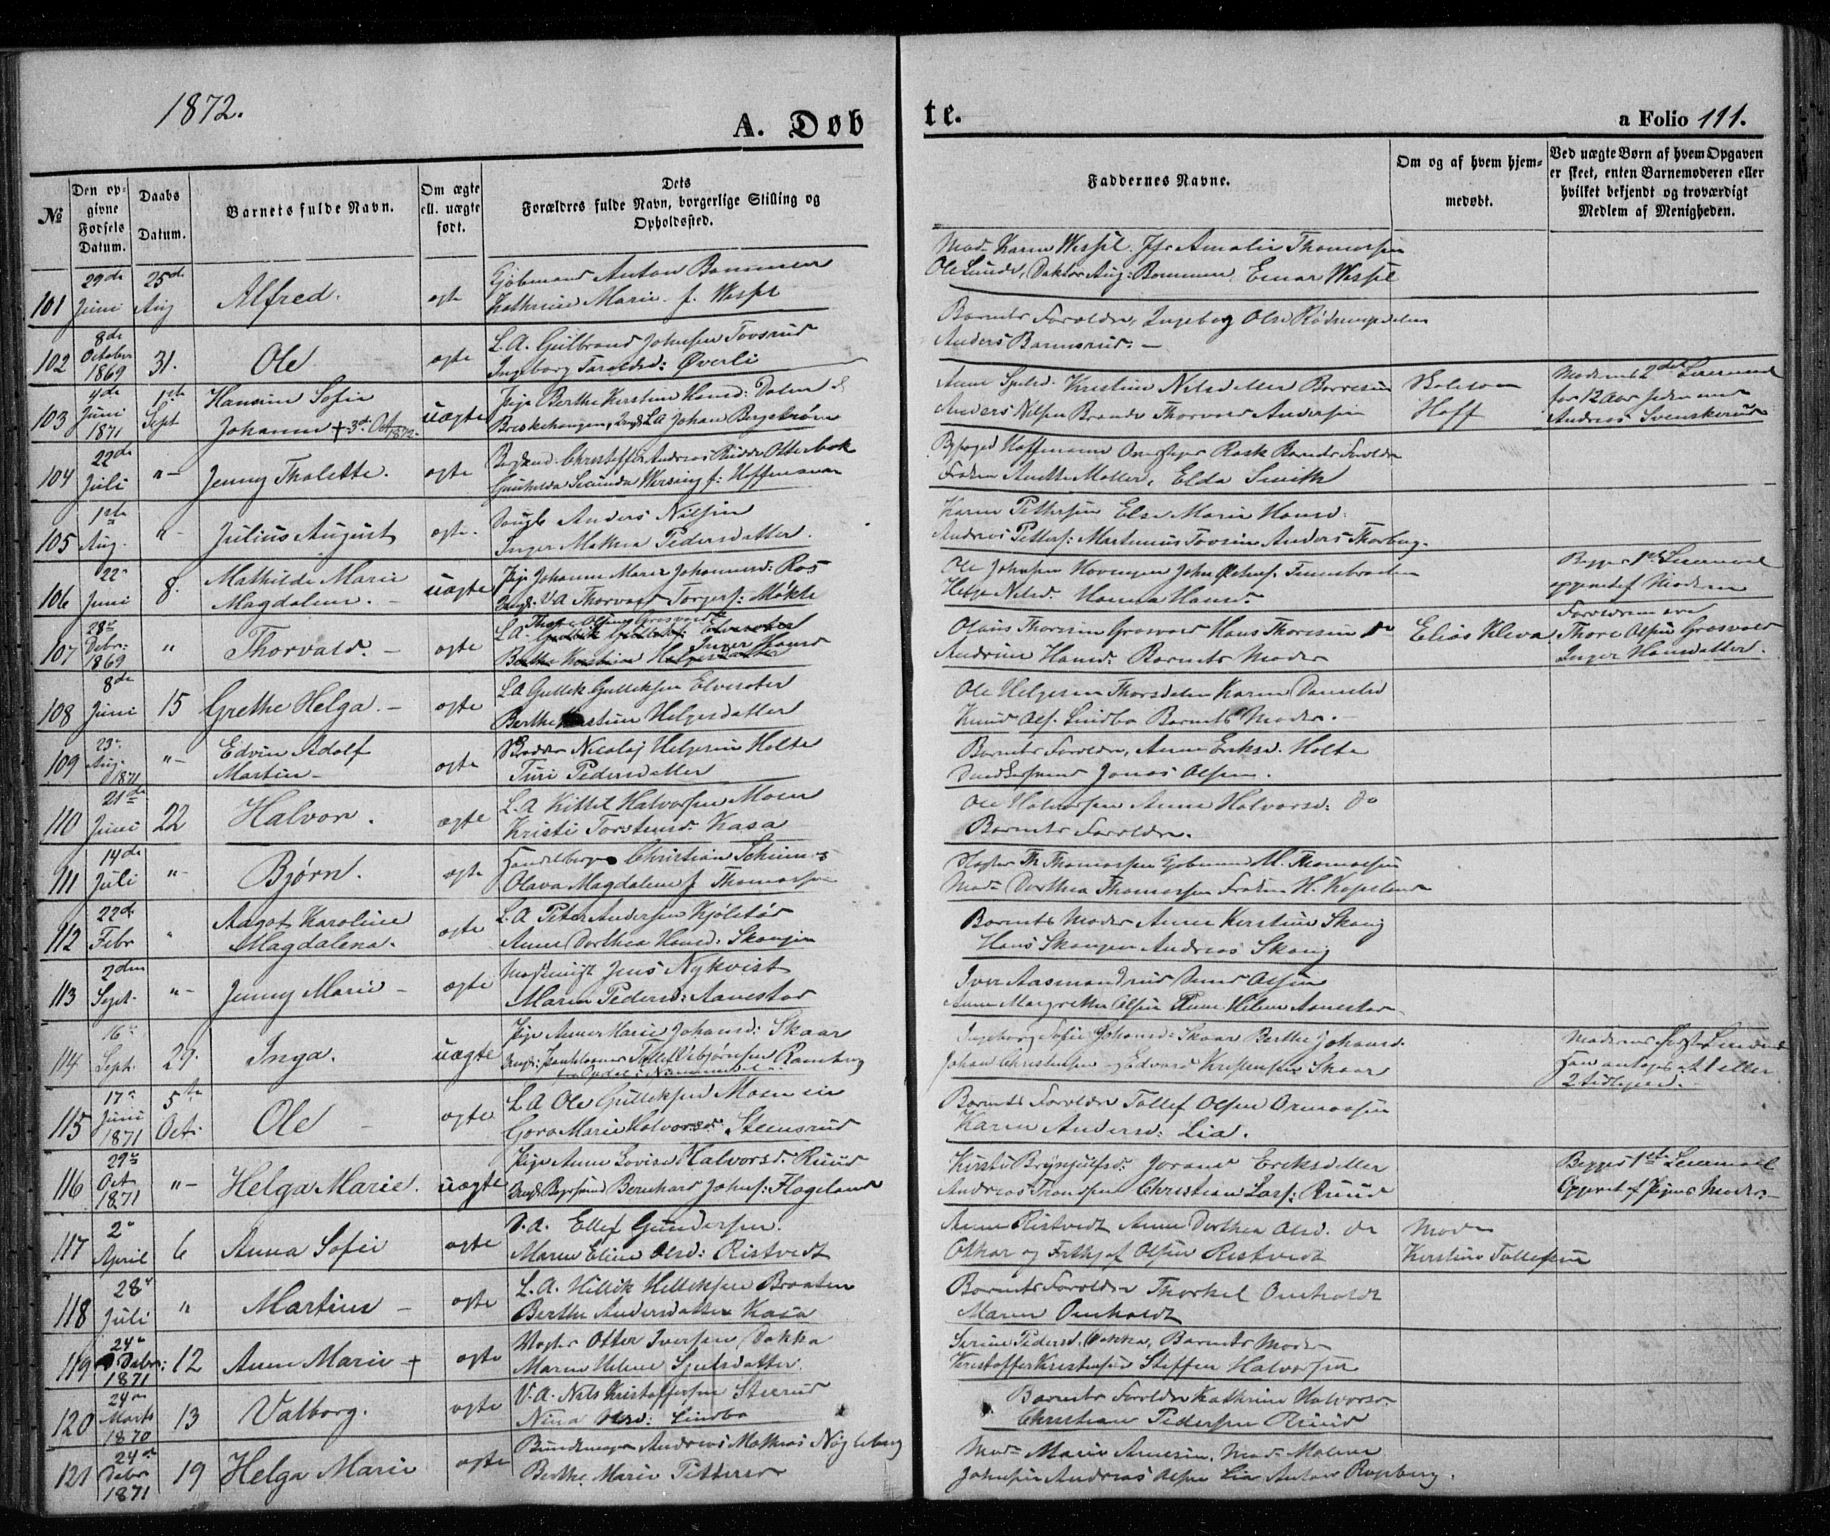 1872.
A. Døb
te.
a Folio 111.
№
Den op-
givne
Fødsels
Datum.
Daabs
Datum.
Barnets fulde Navn.
Om ægte
ell. uægte
født.
Dets
Forældres fulde Navn, borgerlige Stilling og
Opholdssted.
Faddernes Navne.
Om og af hvem hjem-
medøbt.
Ved uægte Børn af hvem Opgaven
er skeet, enten Barnemoderen eller
hvilket bekjendt og troværdigt
Medlem af Menigheden.
101 29de Juni 25de Aug Alfred. ægte Kjøbmand Anton Bommen
Kathrine Marie f. Wessel
Mad. Karen Wessel. Jfr Amalie Thomassen
Ole Lunde, Doktor Aug: Bommen, Einar Wessel
102 8de October 1869 31. Ole ægte L.A. Gulbrand Johnsen Tovsrud
Ingeborg Taraldsd: Øverli
Barnets Forældre, Ingeborg Olsd
Anders Bannsrud. —
103 4de Juni 1871 1ste Sept Hansine Sofie
Johanne + 3de Oct 1872. uægte Pige Berthe Kirstine Hansd: Dolend
Ungk. L.A. Johan Bergstrøm
Anne Kristine Nilsdatter
Anders Nilsen Thorvald Andersen
Hoff
Moderens 2det Leiermaal
for 12 Aar siden med
Andreas Svenskerud
104 22de Juli "– Jenny Thalette. ægte Christoffer Andreas Rudde Otterbek
Gunhilda Secunda Wersing f: Hoffmann
Byfoged Hoffmann Rosk Barnets Forældre
Frøken Anette Møller, Elda Smith
105 1ste Aug. "– Julius August ægte. Anders Nilsen
Inger Mathea Pedersdatter.
Karen Pettersen Else Marie Hansd:
Andreas Petters: Martinius Tovsen Anders Thorberg.
106 22– Juni 8. Mathilde Marie
Magdalene. – uægte Pige Johanne Marie Johannesd: Ros
Ungk. V.A. Thorvald Torgers: Møkle
Ole Johnsen John Olsens:
Helge Nilsd. Hanna Hansd.
Begges 1ste Leiermaal
opgivet af Moderen
107 28de Debr: 1869 " Thorvald. – ægte L.A. Thore Olsen Grosvold
Inger Hansd
Olaus Thoresen Grosvold Hans Thoresen do
Andrine Hansd: Barnets Moder
Elias Kleva
Forældrene ere
Thore Olsen Grosvold
Inger Hansdatter.
108 8de Juni 15 Grethe Helga. – ægte L.A. Gullik Gulliksen Elveseter
Berthe Kirstine Helgesdatter
Ole Helgesen Thorsdalen Karen Danielsd
Knud Ols: Lindbo Barnets Moder. –
109 23– Aug. 1871 "– Edvin Adolf
Martin – ægte Nicolaj Helgesen Holte
Turi Pedersdatter
Barnets Forældre, Anne Eriksd. Holte
Jonas Olsen.
110 21de Juni 22 Halvor. ægte L.A. Kittil Halvorsen Moen
Kristi Torstensd: Kasa
Ole Halvorsen Anne Halvorsd: do
Barnets Forældre.
111 14de Juli "– Bjørn. ægte Handelsborger Christian Schium
Olava Magdalene f Thomassen
Th Thomassen Kjøbmand M. Thomassen
Mad. Dorthea Thomassen Frøken H. Kopeland
112 22d. Febr " Aagot Karoline
Magdalena. ægte L.A. Peter Andersen Kjølstø
Anne Dorthea Hansd: Skangen
Barnets Moder Anne Kirstine Skang
Hans Skangen Andreas Skang
113 2den Sept. "– Jenny Marie – ægte Jens Nykvist
Maren Pedersd: Aanestad
Iver Aasmandrud Olsen
Anne Margrethe Olsen Anne Helene Aanestad.
114 16de Sept. 29. Inga. uægte Pige Anne Marie Johansd: Skaar
Tollef Asbjørnsen Ramberg
fra Opdal i Nummedal
Ingeborg Sofie Johansd: Skaar Berthe Johansd.
Johan Christensen – Edvard Kristensen Skaar
Moderens 1ste Leiermaal
Han antages at 1 eller
2 tidligere.
115 17– Juni 1871 5te Oct. Ole – ægte L.A. Ole Gulliksen Moen
Gora Marie Halvorsd: Steensrud
Barnets Forældre Tollef Olsen Ormaasen
Karen Andersd: Lia.
116 29de Oct 1871 "– Helga Marie. uægte Pige Anne Lovise Halvorsd: Ruud
Ungk Bernhard Johns: Flageland
Kirsti Brynjulfsd: Joran Eriksdatter
Andreas Trondsen Christian Lars: Ruud
Begges 1ste Leiermaal
Opgivet af Pigens Moder
117 2– April 6 Anna Sofie ægte V.A. Ellef Gundersen.
Maren Eline Olsd: Ristvedt
Anne Ristvedt Anne Dorthea Olsd. do
Othar og Frithjof Olsen Ristvedt
Mad–
Kirstine Tollefsen
118 28de Juli " Martin – ægte L.A. Hellik Helliksen Braaten
Berthe Andersdatter Kasa
Barnets Forældre Thorkel Omholdt
Maren Omholdt
119 24– Debr: 1871 12 Anne Marie + ægte Otter Iversen Dokka
Maren Helene Sjulsdatter.
Sirine Pedersd. Dokka, Barnets Moder
Kristoffer Kristensen Steffen Halvorsen
120 24de Marts 1870 13 Valborg. ægte V.A. Nils Kristoffersen Steerud
Nina Olsd: Lindbo
Barnets Forældre Kathrine Halvorsd.
Christian Pedersen Ruud
121 24de Debr 1871 19 Helga Marie ægte Andreas Mathias Nøgleberg
Berthe Marie Petterse
Mad– Marie Arnesen, Mad– Malene
Johnsen Andreas Olsen Lia Anton Rygberg.